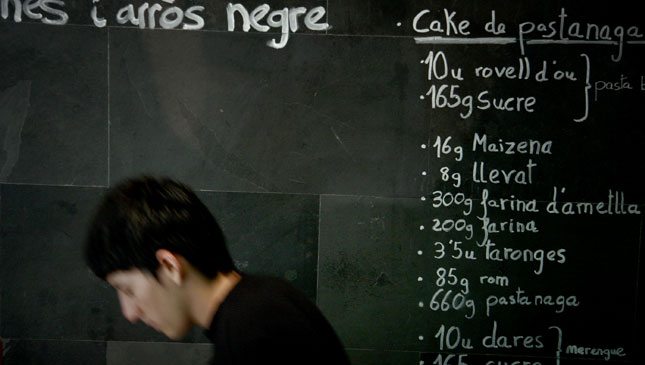 nes i arròs negre
· Cake de pastanaga
· 10u rovell d'ou
· 165g Sucre
pasta b
· 16g Maizena
· 8g llevat
· 300g farina d'ametlla
· 200g farina
· 3'5u taronges
· 85g rom
· 660g pastanaga
· 10u clares
merengue
· 165 sucre